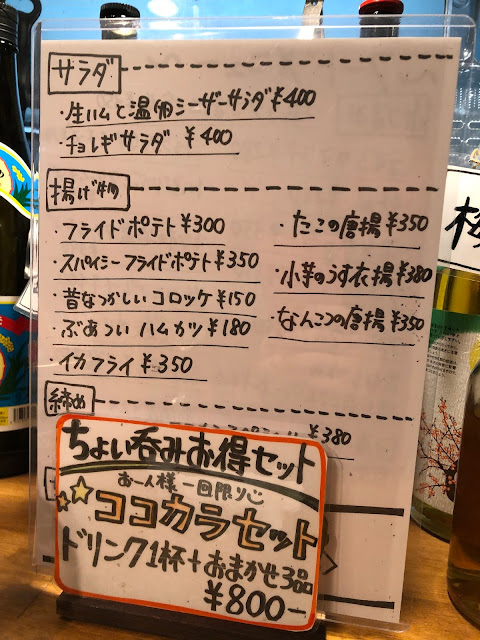 サラダ
・生ハムと温卵シーザーサラダ ¥400
・チョレギサラダ ¥400
揚げ物
・フライドポテト ¥300
・スパイシーフライドポテト ¥350
・昔なつかしいコロッケ ¥150
・ぶあついハムカツ ¥180
・イカフライ ¥350
・たこの唐揚 ¥350
・小芋のうす衣揚 ¥380
・なんこつの唐揚 ¥350
締め
¥380
ちょい呑みお得セット
お一人様一回限り♡
ココカラセット
ドリンク1杯+おまかせ3品
¥800-
梅